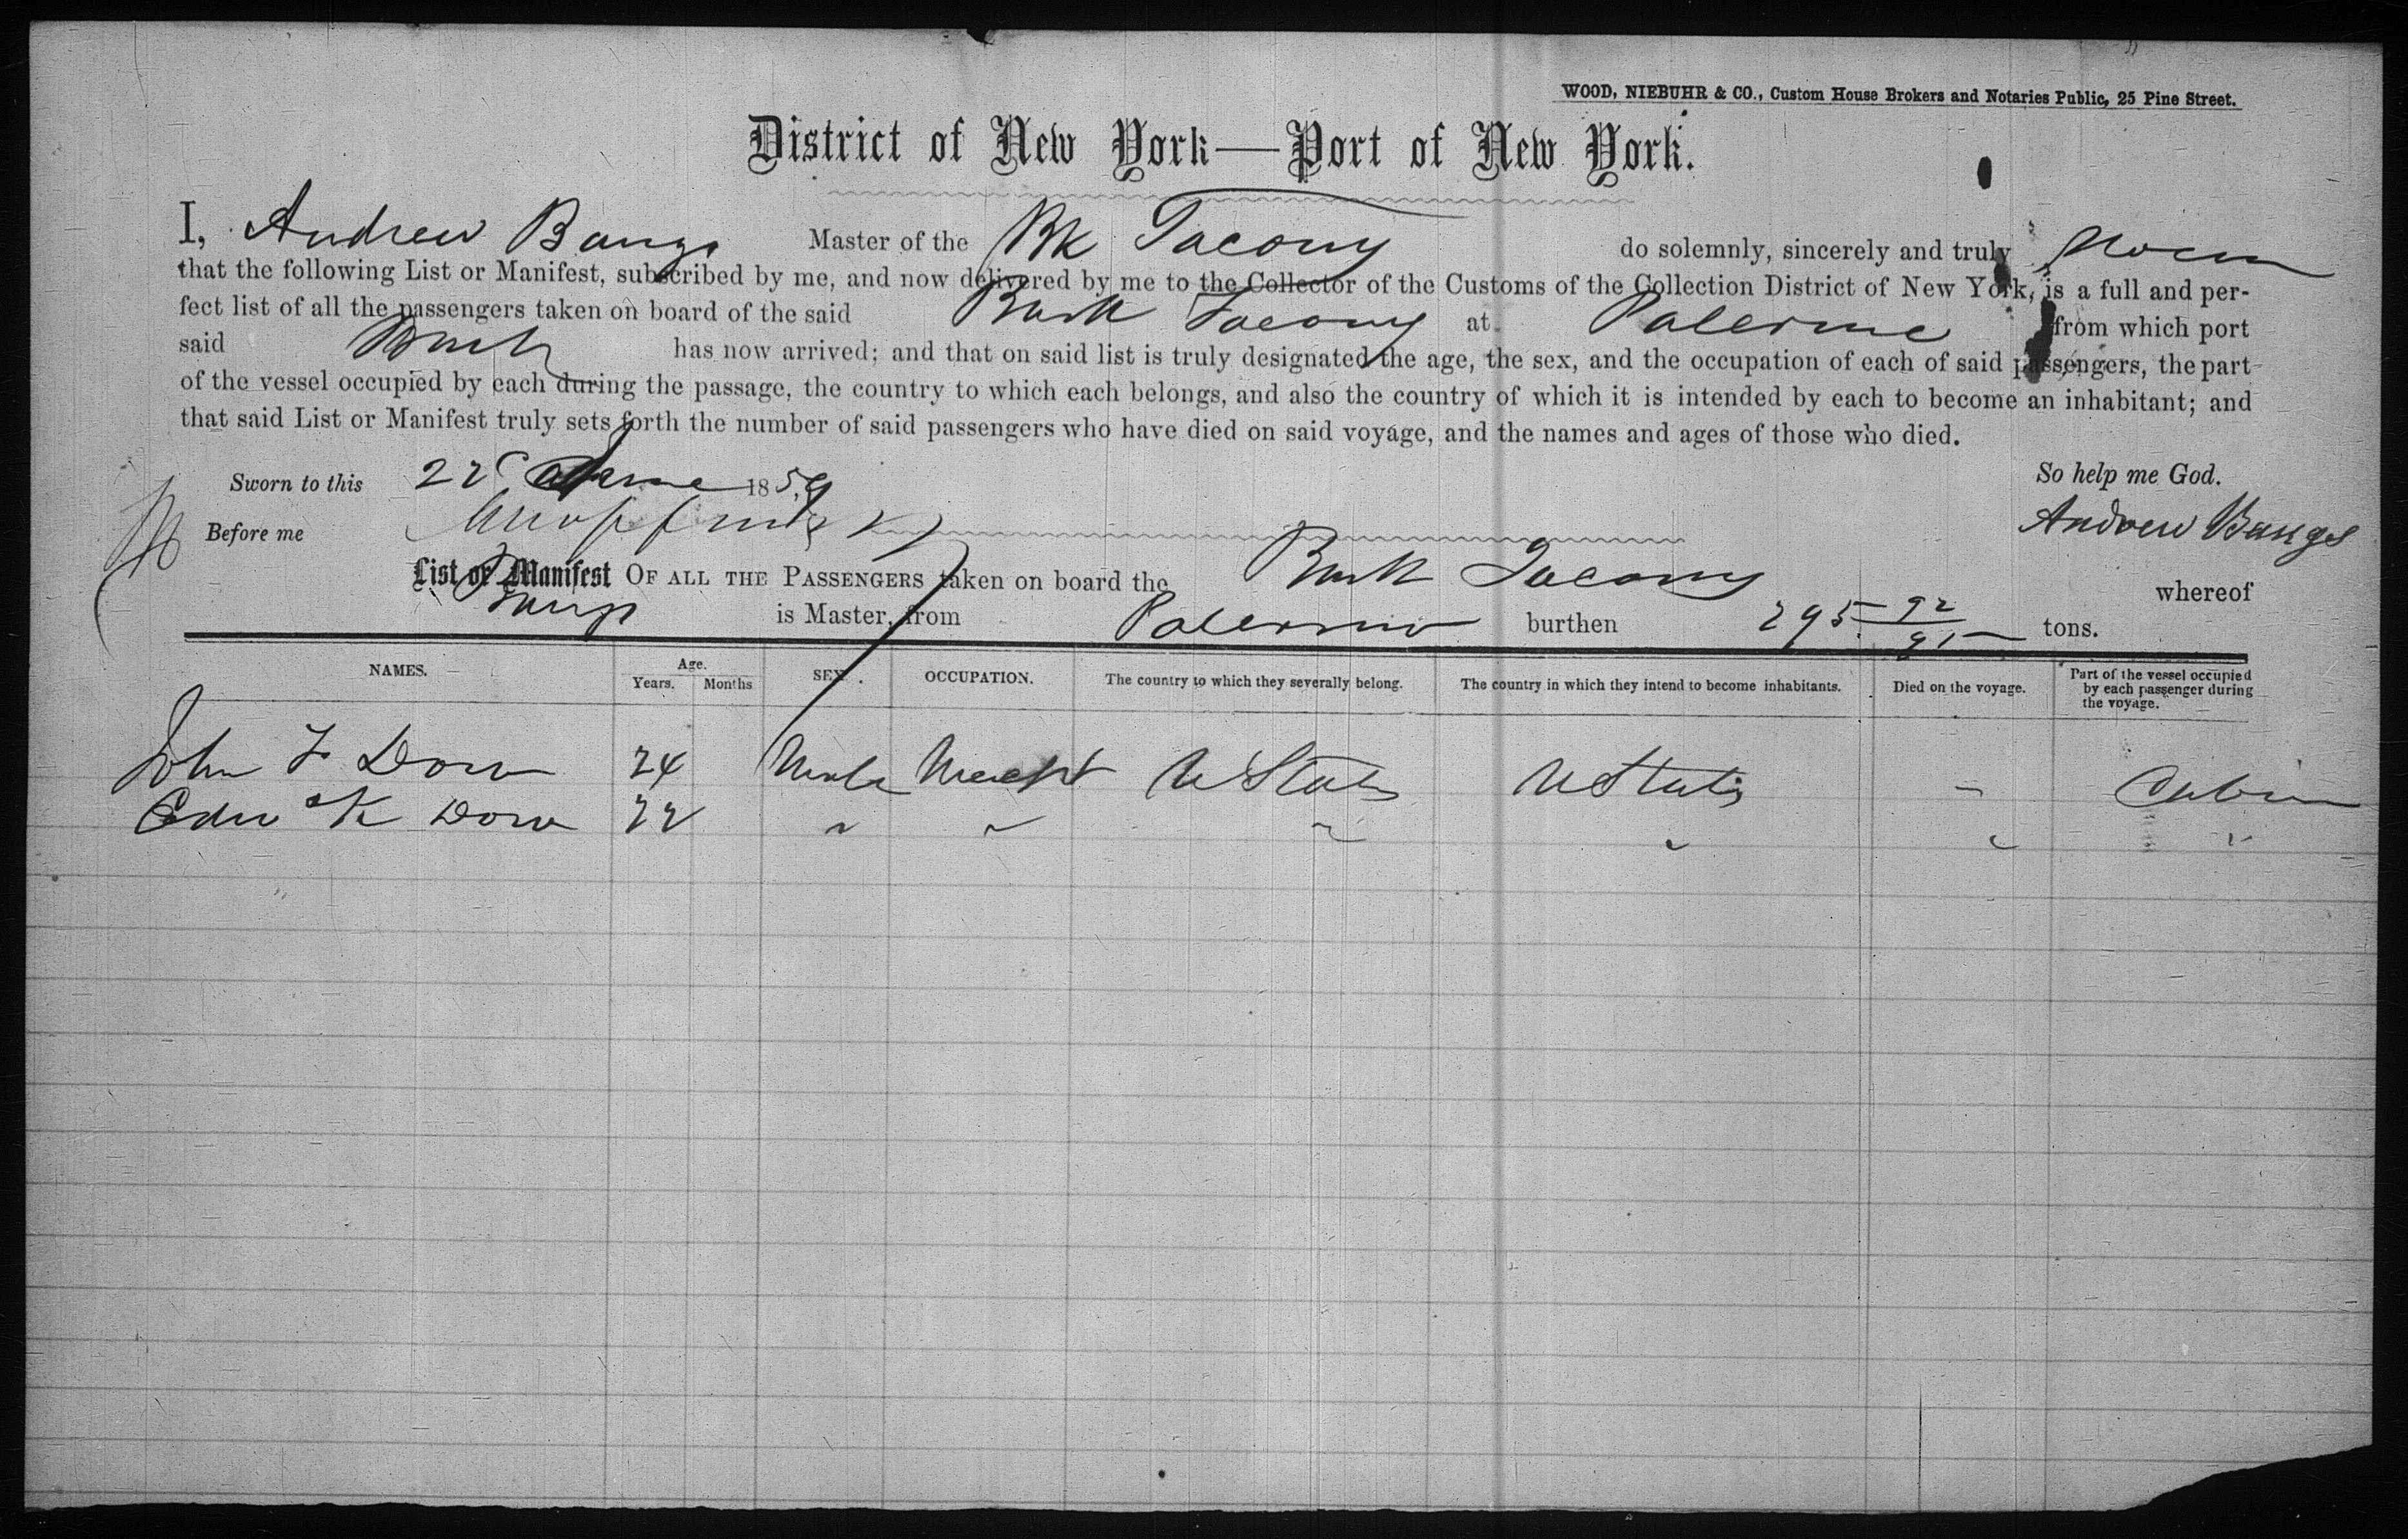 WOOD, NIEBUHR & CO., Custom House Brokers and Notaries Public, 25 Pine Street.
District of New York—Port of New York.
I, Andrew Bangs Master of the Bk Tacony do solemnly, sincerely and truly
that the following List or Manifest, subscribed by me, and now delivered by me to the Collector of the Customs of the Collection District of New York, is a full and per-
fect list of all the passengers taken on board of the said Bark Tacony at Palermo from which port
said Bark has now arrived; and that on said list is truly designated the age, the sex, and the occupation of each of said passengers, the part
of the vessel occupied by each during the passage, the country to which each belongs, and also the country of which it is intended by each to become an inhabitant; and
that said List or Manifest truly sets forth the number of said passengers who have died on said voyage, and the names and ages of those who died.
Sworn to this 22 June 1859 So help me God.
Before me Andrew Bangs
List or Manifest OF ALL THE PASSENGERS taken on board the Bark Tacony whereof
Bangs is Master, from Palermo burthen 295 92/95 tons.
NAMES. Age. Years. Months SEX. OCCUPATION. The country to which they severally belong. The country in which they intend to become inhabitants. Died on the voyage. Part of the vessel occupied by each passenger during the voyage.
John F Dow 24 Male Mercht U States U States - Cabin
Edw K Dow 22 " " " " " "